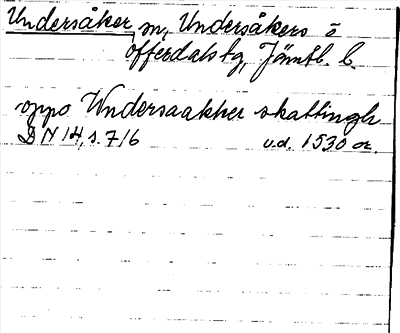 Undersåker sn, Undersåkers o
Offerdals tg, Jämtl. l.
oppo Wndersaakher skattingh
DN 14, s. 716 u.d. 1530 or.